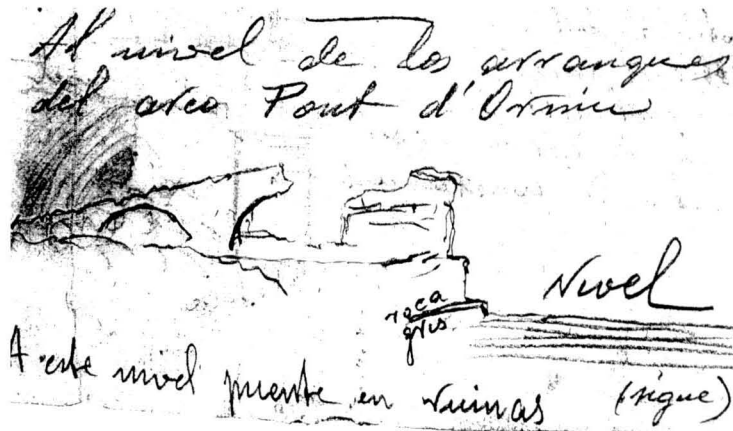 Al nivel de los arranques
del arco Pont d'Orniu
Nivel
roca
gris.
A este nivel puente en ruinas (sigue)